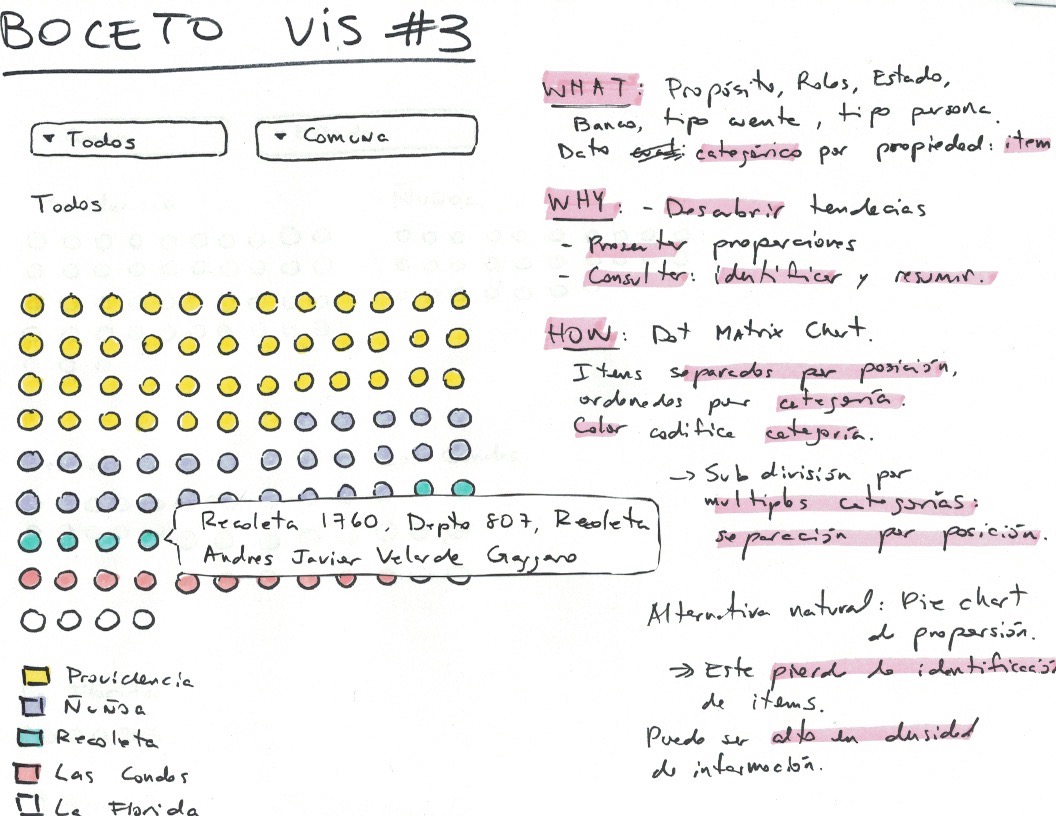 BOCETO VIS #3
▾ Todos
▾ Comuna
Todos
Recoleta 1760, Depto 807, Recoleta
Andres Javier Velarde Gaggero
Providencia
Ñuñoa
Recoleta
Las Condes
La Florida
WHAT: Propósito, Roles, Estado,
Banco, tipo cuente, tipo persona.
Dato categórico por propiedad: item
WHY: - Descubrir tendecias
- Presentar proporciones
- Consultar: identificar y resumir.
HOW: Dot Matrix Chart.
Items separados por posición,
ordenados por categoría.
Color codifica categoría.
→ Sub división por
multiples categorías:
separación por posición.
Alternativa natural: Pie chart
de proporsión.
⇒ Este pierde la identificación
de items.
Puede ser alto en densidad
de información.